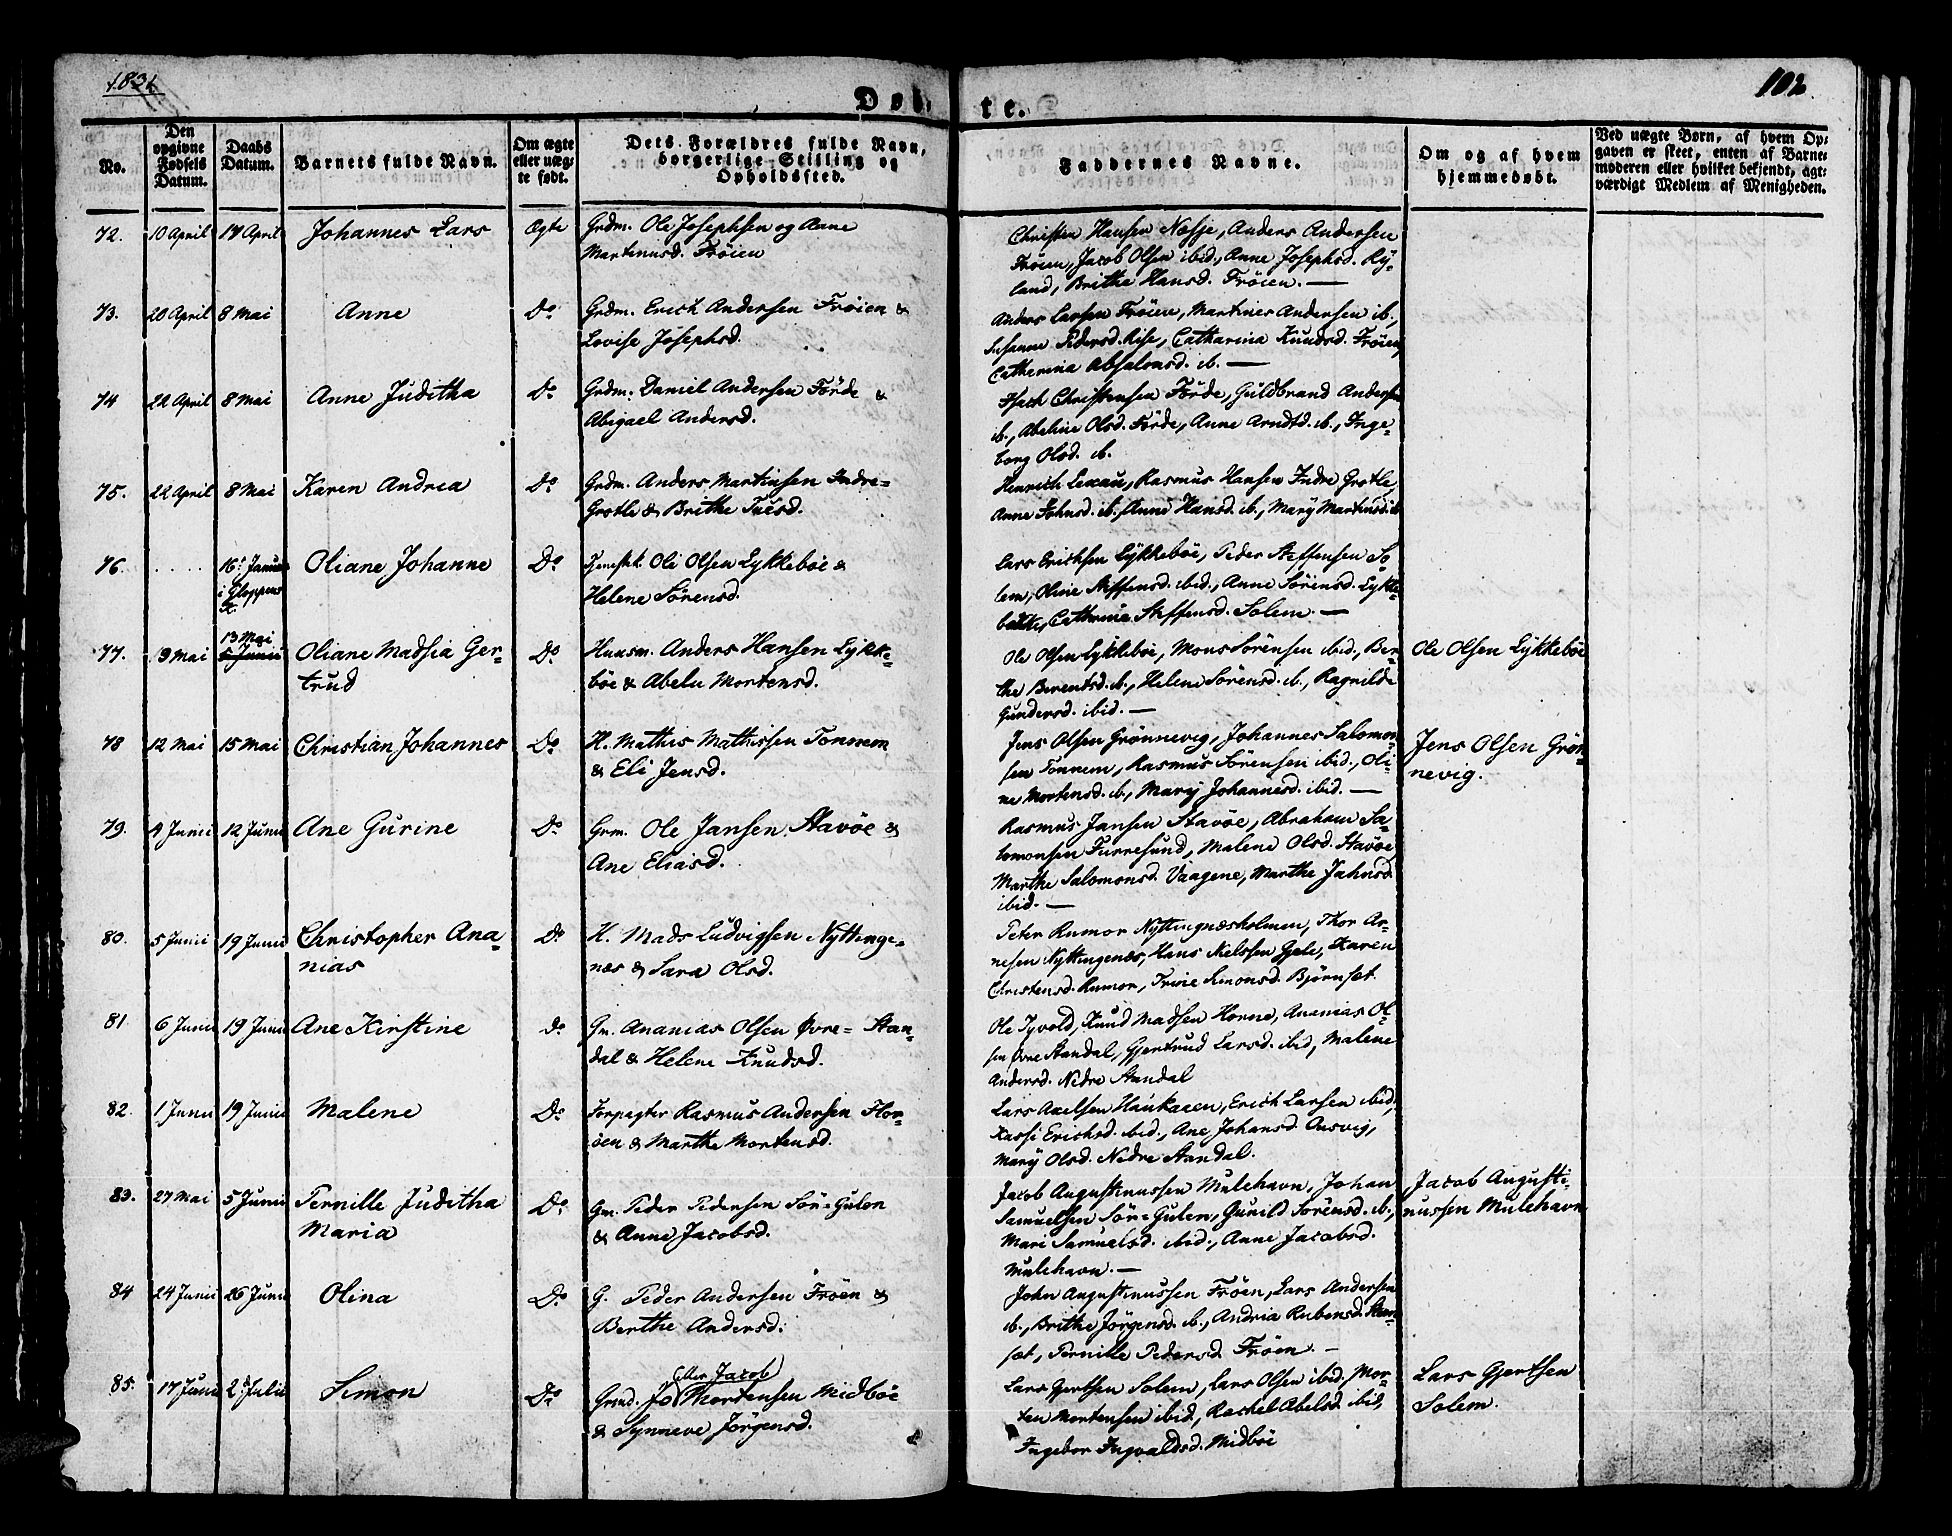 1831
102
Døb-
te.
No.
Den
opgivne
Fødsels
Datum.
Daabs
Datum.
Barnets fulde Navn.
Om ægte
eller uæg-
te født.
Dets Forældres fulde Navn,
borgerlige Stilling og
Opholdssted.
Faddernes Navne.
Om og af hvem
hjemmedøbt.
Ved uægte Børn, af hvem Op-
gaven er skeet, enten af Barne-
moderen eller hvilket bekjendt, agt-
værdigt Medlem af Menigheden.
72. 10 April 17 April Johannes Lars Ægte Grdm. Ole Josephsen og Anne
Martinusd. Frøien
Christen Hansen Nosje, Anders Andersen
Frøien, Jacob Olsen ibid., Anne Josephsd. Ry-
land, Brithe Hansd. Frøien. —
73. 20 April 8 Mai Anne Do. Grdm. Erich Andersen Frøien &
Lovise Josephsd.
Anders Larsen Frøien, Martines Andersen ib.,
Susanne Pedersd. Rise, Catharina Knudsd. Frøien,
Catharina Absalonsd. ib. —
74 22 April 8 Mai Anne Juditha Do. Grdm. Daniel Andersen Förde &
Abigael Andersd.
Isach Christensen Förde, Guldbrand Andersen
ib., Abeline Olsd. Förde, Anne Arndtd. ib., Inge-
borg Olsd. ib.
75. 22 April 8 Mai Karen Andrea Do. Grdm. Anders Martinsen Indre-
Grotle & Brithe Tuesd.
Henrich Lexau, Rasmus Hansen Indre Grotle,
Anne Johnsd. ib., Anne Hansd. ib., Mary Martinsd. ib.
76. .... 16. Januar
i Gloppens
K. Oliane Johanne Do. Tjenestk. Ole Olsen Lykkebøe &
Helene Sörensd.
Lars Erichsen Lykkebøe, Peder Steffensen So-
lem, Oline Steffensd. ibid., Anne Sörensd. Lykke-
Catharina Steffensd. Solem. —
77. 9 Mai 13 Mai
5 Junii Oliane Madsia Ger-
trud Do. Huusm. Anders Hansen Lykke-
bøe & Abelu Mortensd.
Ole Olsen Lykkebøe, Mons Sörensen ibid., Ber-
the Berentsd. ib., Helene Sörensd. ib., Ragnilde
Gundersd. ibid. —
Ole Olsen Lykkebøe
78 12 Mai 15 Mai Christian Johannes Do. H. Mathis Mathissen Tonnem
& Eli Jensd.
Jens Olsen Grönnevig, Johannes Salomon-
sen Tonnem, Rasmus Sörensen ibid., Oli-
ne Mortensd. ib., Mary Johannesd. ibid. —
Jens Olsen Grön-
nevig.
79. 4 Junii 12 Junii Ane Gurine Do. Grm. Ole Jansen Stavøe &
Ane Eliasd.
Rasmus Jansen Stavøe, Abraham Sa-
lomonsen Furresund, Malene Olsd. Stavøe,
Marthe Salomonsd. Vaagene, Marthe Jahnsd.
ibid. —
80. 5 Junii 19 Junii Christopher Ana-
nias Do. H. Mads Ludvigsen Nyttinge-
næs & Sara Olsd.
Peter Rumor Nyttingnæsholmen, Thor Ar-
nesen Nyttingenæs, Hans Nielssen Gjele, Karen
Christensd. Rumor, Trine Simonsd. Bjørnset
81. 6 Junii 19 Junii Ane Kirstine do. Gm. Ananias Olsen Øvre- Stan-
dal & Helene Knudsd.
Ole Tyvold, Knud Madsen Horne, Ananias Ol-
sen Øvre Standal, Gjertrud Larsd. ibid, Malene
Andersd. Nedre Standal
82. 1 Junii 19 Junii Malene Do. Forpagter Rasmus Andersen Hor-
öen & Marthe Mortensd.
Lars Axelsen Haukaaen, Erich Larsen ibid,
Kassi Erichsd. ibid., Ane Johansd. Ausvig,
Mary Olsd. Nedre Standal.
83. 27 Mai 5 Junii Pernille Juditha
Maria Do. Gm. Peder Pedersen Sör-Gulen
& Anne Jacobsd.
Jacob Augustinussen Mulehavn, Johan
Samuelsen Sör-Gulen, Gunild Sörensd. ib.,
Mari Samuelsd. ibid., Anne Jacobsd.
Mulehavn. —
Jacob Augusti-
nussen Mulehavn
84 24 Junii 26 Junii Olina Do. G. Peder Andersen Frøen &
Berthe Andersd.
John Augustinussen Frøen, Lars Andersen
ib., Brithe Jörgensd. ib., Andria Rubensd.
sæt, Pernille Pedersd. Frøen. —
85. 17 Junii 2. Julii Simon Do. eller Jacob
Grmd. Jo Mortensen Midbøe
& Synneve Jörgensd.
Lars Gjertsen Solem, Lars Olsen ibid, Mor-
ten Mortensen ibid, Rachel Abelsd. ibid,
Ingebor Ingvaldsd. Midbøe
Lars Gjertsen
Solem.